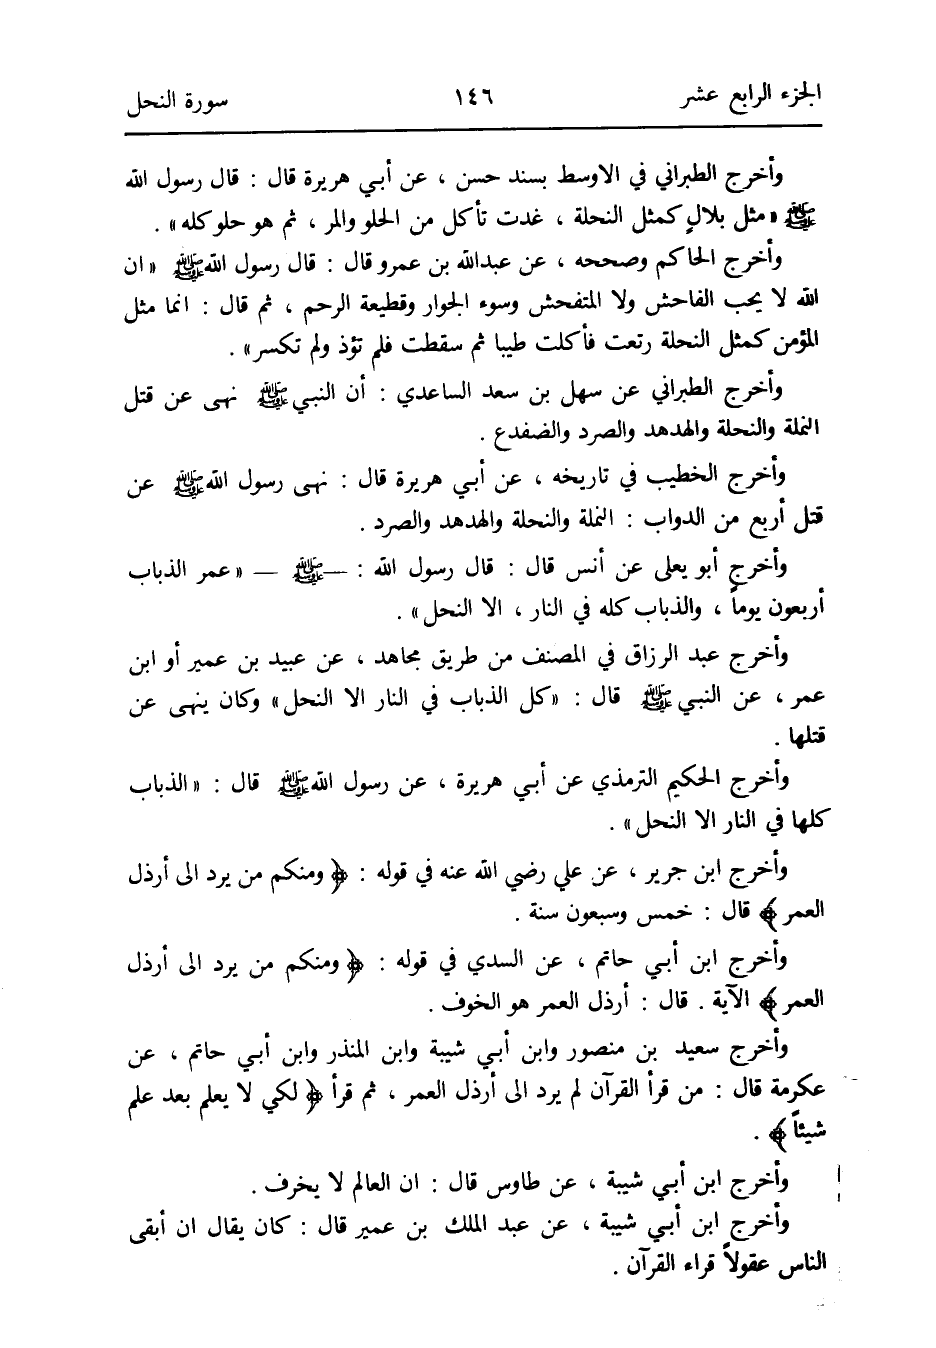 الجزء الرابع عشر ١٤٦ سورة النحل
وأخرج الطبراني في الاوسط بسند حسن ، عن أبي هريرة قال : قال رسول الله
ﷺ «مثل بلالٍ كمثل النحلة ، غدت تأكل من الحلو والمر ، ثم هو حلو كله» .
وأخرج الحاكم وصححه ، عن عبدالله بن عمرو قال : قال رسول الله ﷺ «ان
الله لا يحب الفاحش ولا المتفحش وسوء الجوار وقطيعة الرحم ، ثم قال : انما مثل
المؤمن كمثل النحلة رتعت فأكلت طيبا ثم سقطت فلم تؤذ ولم تكسر» .
وأخرج الطبراني عن سهل بن سعد الساعدي : أن النبي ﷺ نهى عن قتل
النملة والنحلة والهدهد والصرد والضفدع .
وأخرج الخطيب في تاريخه ، عن أبي هريرة قال : نهى رسول الله ﷺ عن
قتل أربع من الدواب : النملة والنحلة والهدهد والصرد .
وأخرج أبو يعلى عن أنس قال : قال رسول الله : — ﷺ — «عمر الذباب
أربعون يوماً ، والذباب كله في النار ، الا النحل» .
وأخرج عبد الرزاق في المصنف من طريق مجاهد ، عن عبيد بن عمير أو ابن
عمر ، عن النبي ﷺ قال : «كل الذباب في النار الا النحل» وكان ينهى عن
قتلها .
وأخرج الحكيم الترمذي عن أبي هريرة ، عن رسول الله ﷺ قال : «الذباب
كلها في النار الا النحل» .
وأخرج ابن جرير ، عن علي رضي الله عنه في قوله : ﴿ ومنكم من يرد الى أرذل
العمر ﴾ قال : خمس وسبعون سنة .
وأخرج ابن أبي حاتم ، عن السدي في قوله : ﴿ ومنكم من يرد الى أرذل
العمر ﴾ الآية . قال : أرذل العمر هو الخوف .
وأخرج سعيد بن منصور وابن أبي شيبة وابن المنذر وابن أبي حاتم ، عن
عكرمة قال : من قرأ القرآن لم يرد الى أرذل العمر ، ثم قرأ ﴿ لكي لا يعلم بعد علم
شيئاً ﴾ .
وأخرج ابن أبي شيبة ، عن طاوس قال : ان العالم لا يخرف .
وأخرج ابن أبي شيبة ، عن عبد الملك بن عمير قال : كان يقال ان أبقى
الناس عقولاً قراء القرآن .